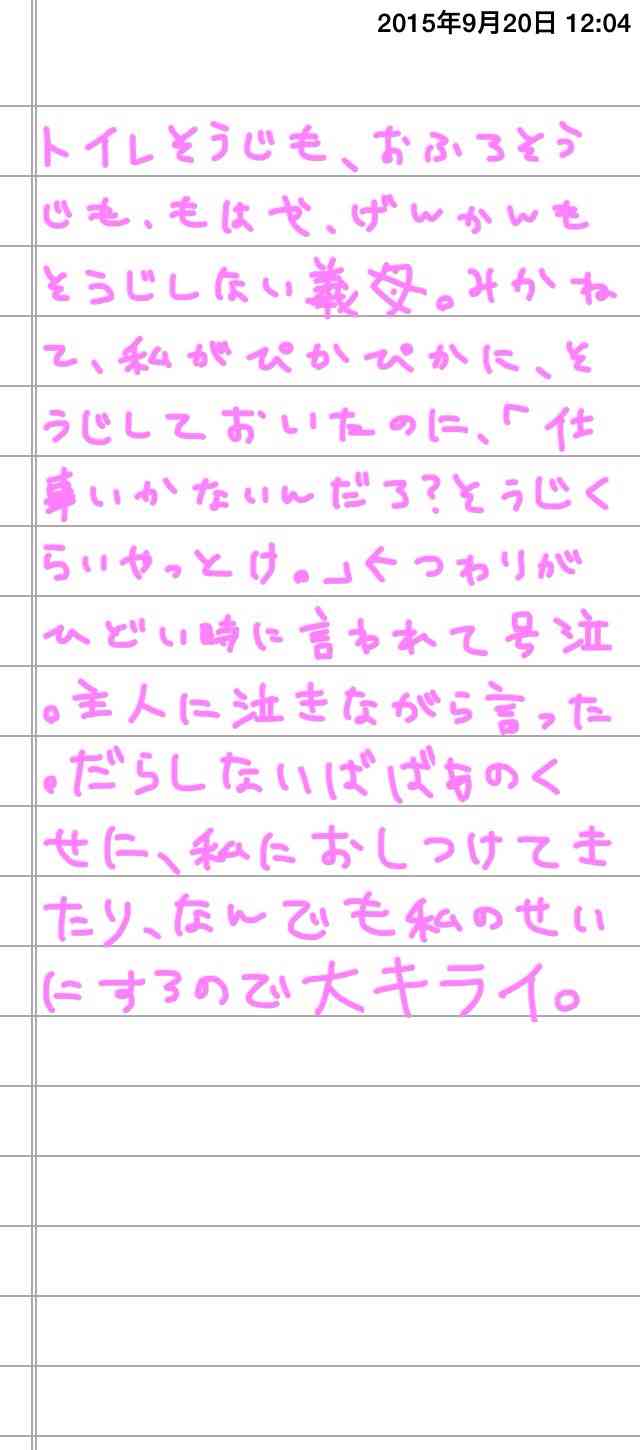 2015年9月20日 12:04
トイレそうじも、おふろそう
じも、もはや、げんかんも
そうじしない義母。みかね
て、私がぴかぴかに、そ
うじしておいたのに、「仕
事いかないんだろ?そうじく
らいやっとけ。」←つわりが
ひどい時に言われて号泣
。主人に泣きながら言った
。だらしないばばぁのく
せに、私におしつけてき
たり、なんでも私のせい
にするので大キライ。